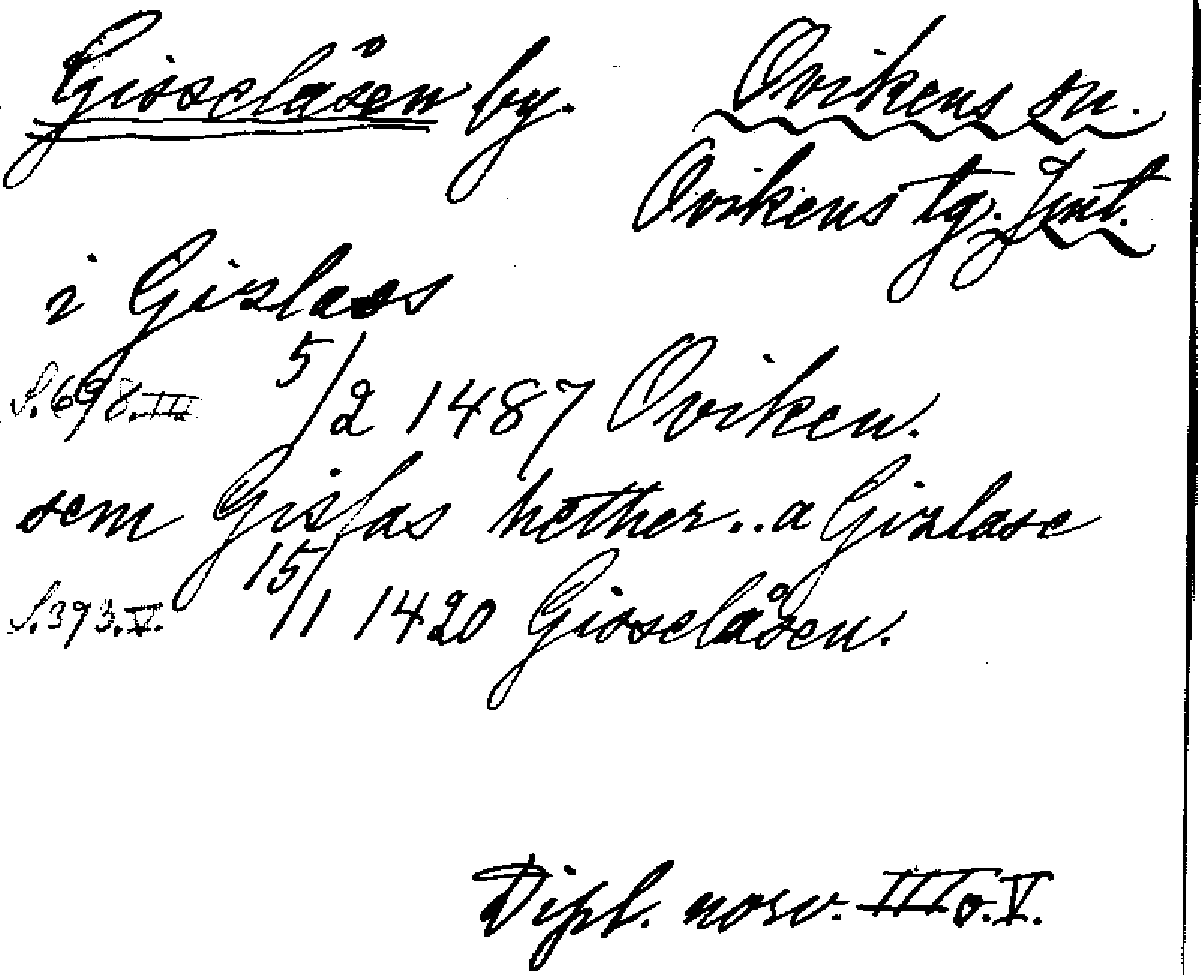 Gisselåsen by. Ovikens sn.
Ovikens tg. Jmt.
i Gizlaas
S. 698. III 5/2 1487 Oviken.
sem Gisfas hether .. a Gizlase
S. 393. V. 15/1 1420 Gisselåsen.
Dipl. norv. III o. V.